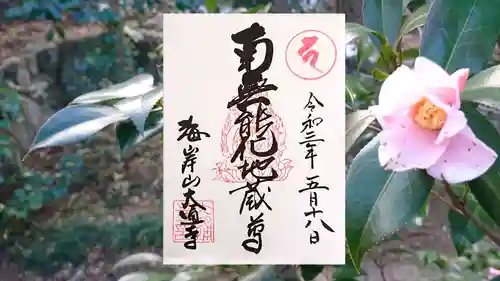 令和三年 五月十八日
南無能化地蔵尊
海岸山大道寺